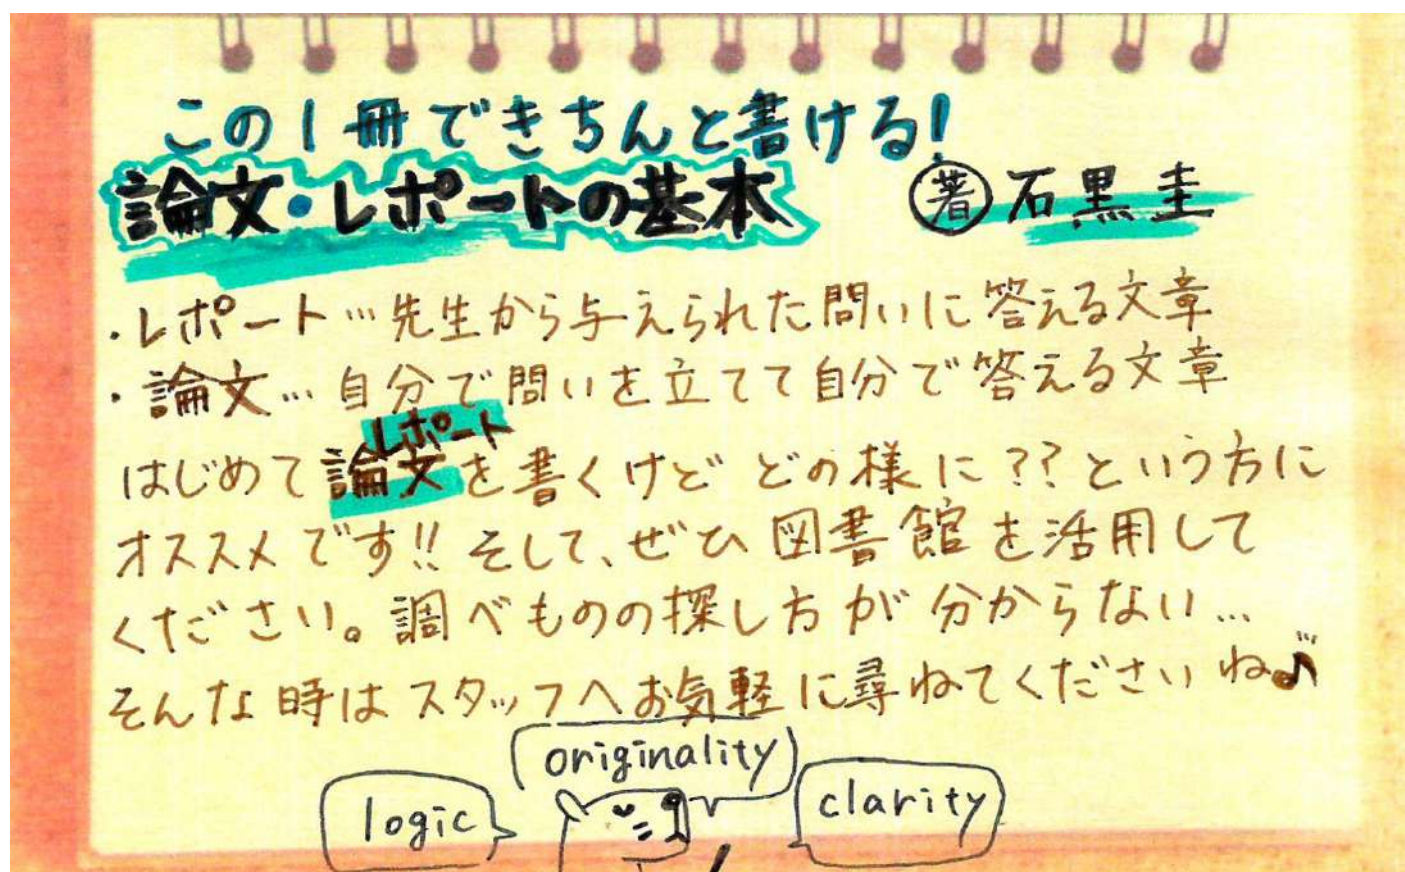 この1冊できちんと書ける!
論文・レポートの基本 著 石黒圭
・レポート…先生から与えられた問いに答える文章
・論文…自分で問いを立てて自分で答える文章
レポート
はじめて論文を書くけど どの様に??という方に
オススメです!! そして、ぜひ図書館を活用して
ください。調べものの探し方が分からない…
そんな時はスタッフへお気軽に尋ねてくださいね♪
originality
logic
clarity